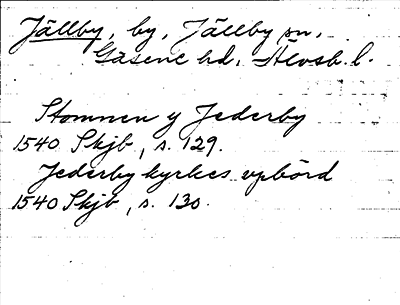 Jällby, by, Jällby sn,
Gäsene hd, Älvsb. l.
Stommen y Jederby
1540 Skjb, s. 129.
Jederby kyrkes upbörd
1540 Skjb, s. 130.